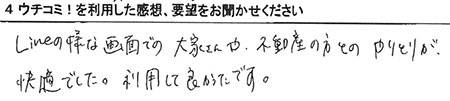 4 ウチコミ！を利用した感想、要望をお聞かせください
Lineの様な画面での 大家さんや、不動産の方との やりとりが、
快適でした。利用して良かったです。